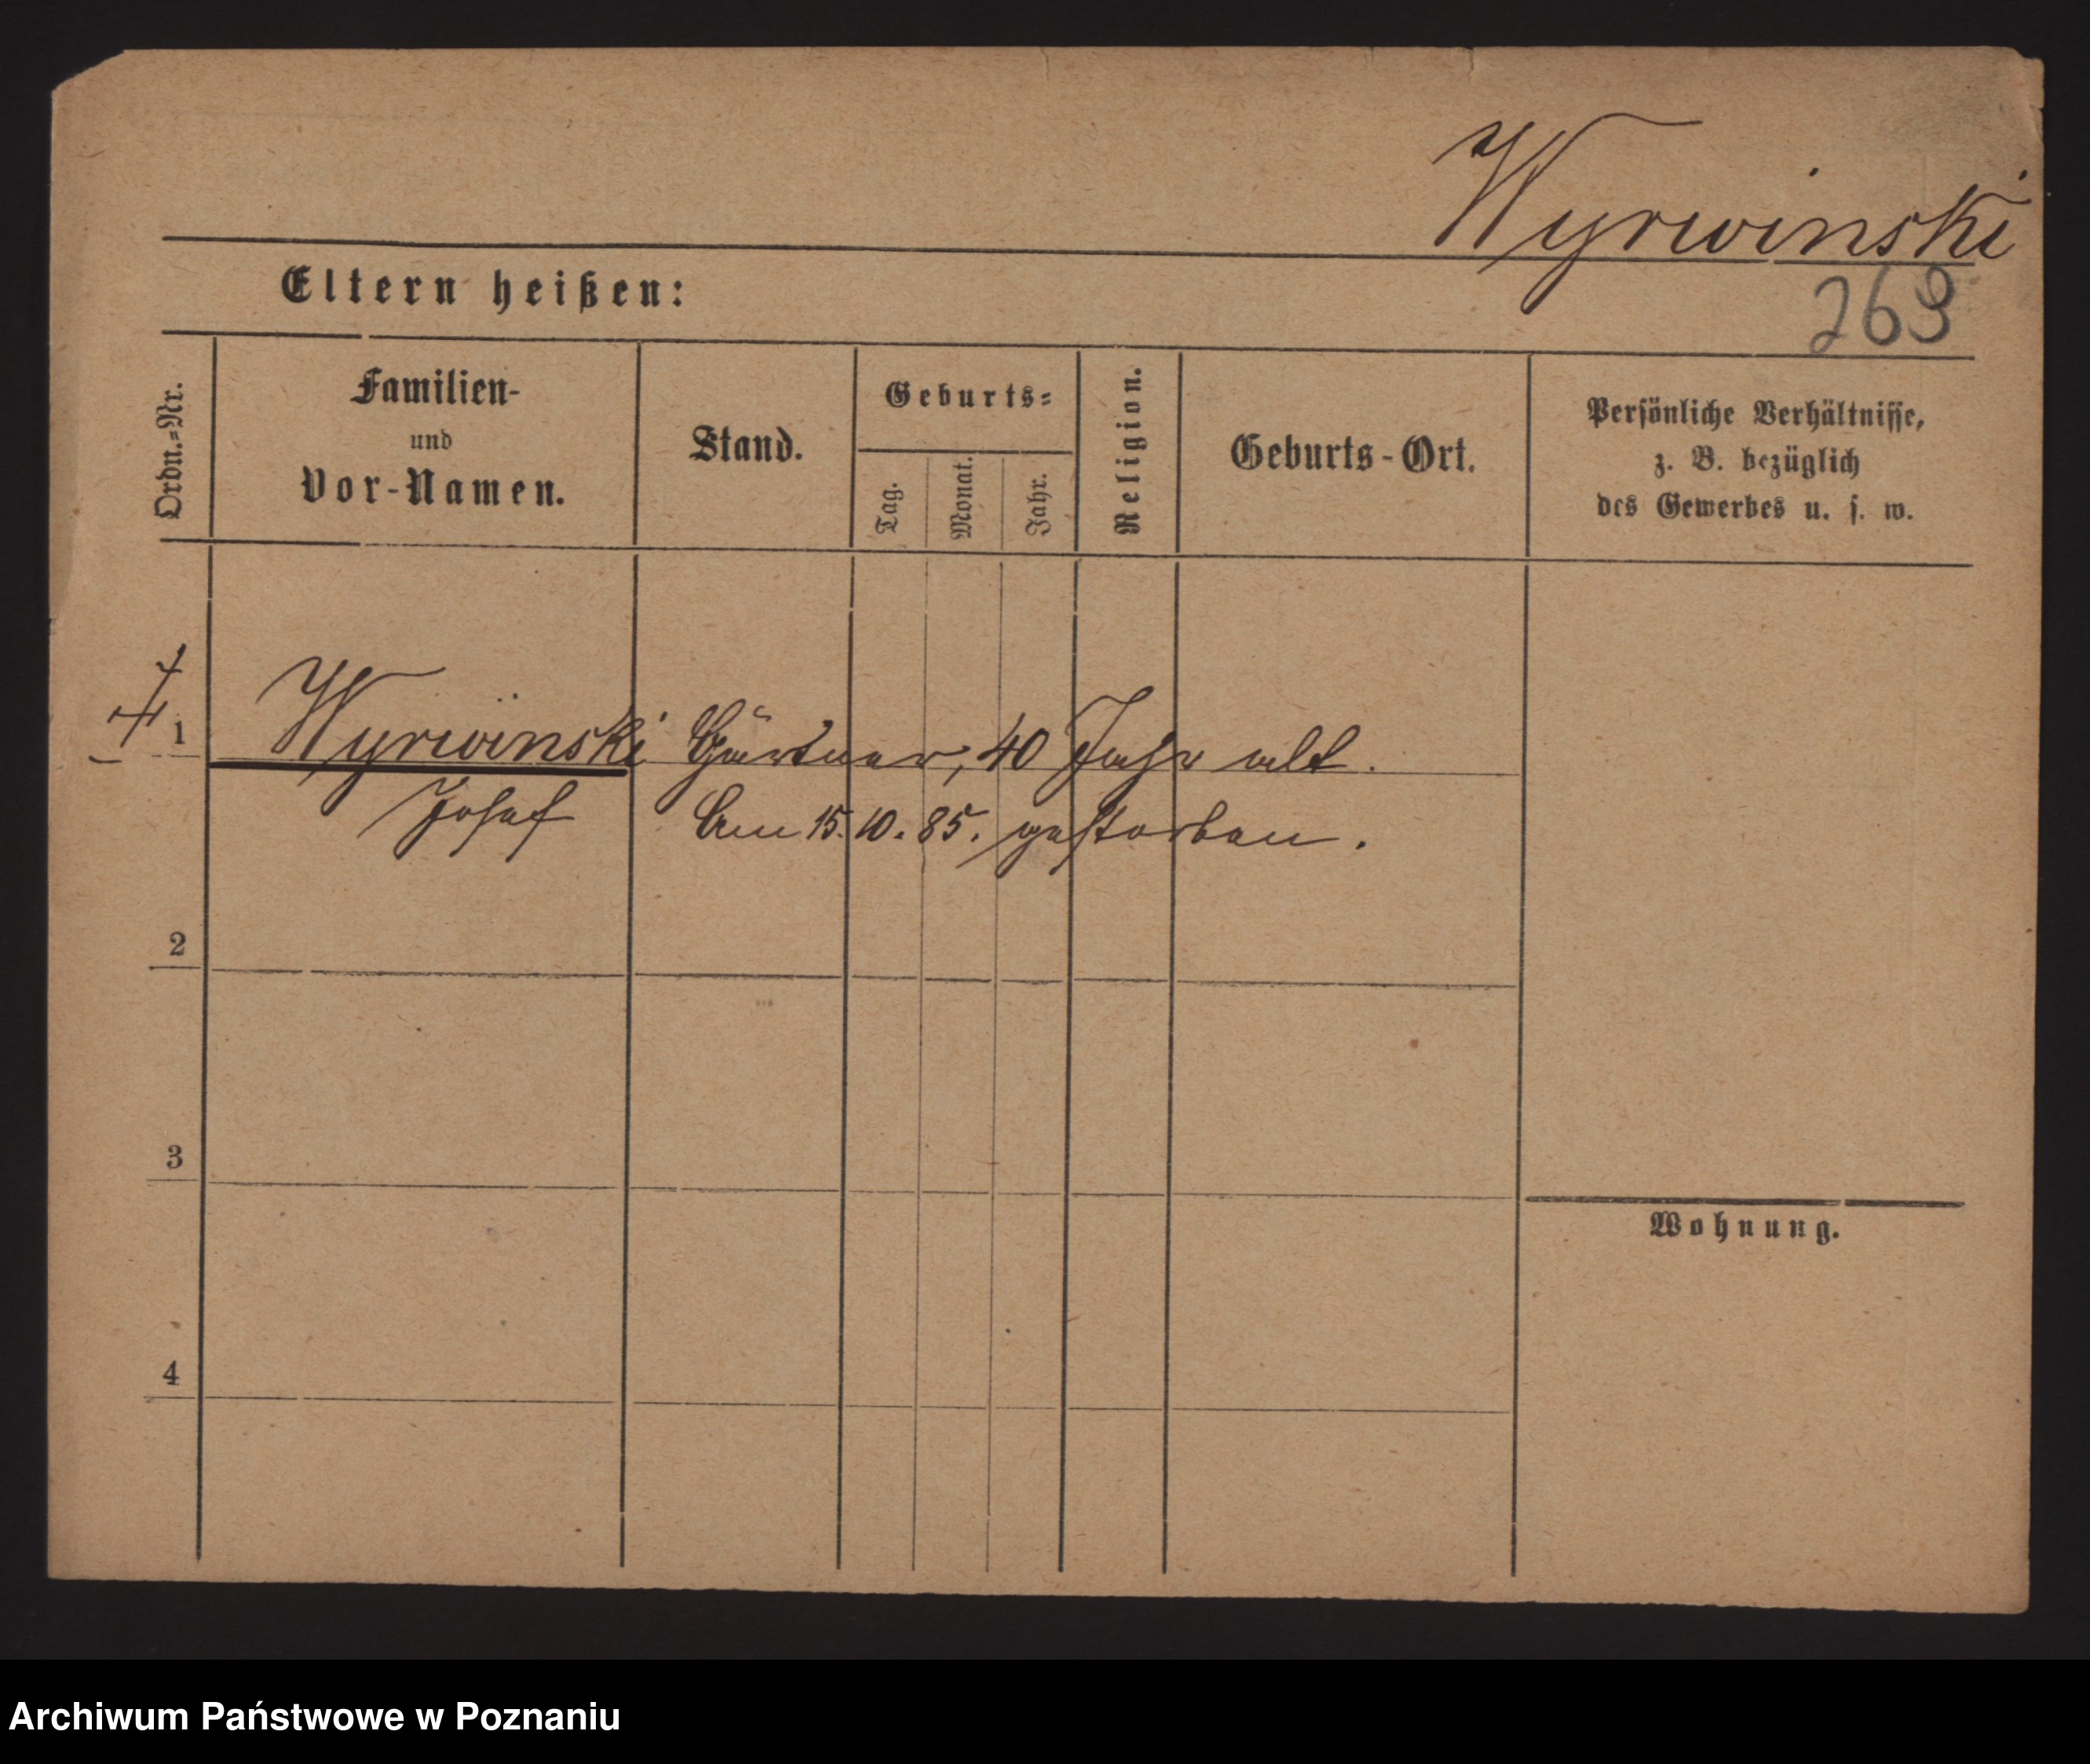 Wyrwinski
263
Eltern heißen:
Ordn.=Nr.
Familien-
und
Vor-Namen.
Stand.
Geburts=
Tag.
Monat.
Jahr.
Religion.
Geburts-Ort.
Persönliche Verhältnisse,
z. B. bezüglich
des Gewerbes u. s. w.
1 Wyrwinski Gärtner, 40 Jahr alt.
Josef Am 15. 10. 85. gestorben.
2
3
Wohnung.
4
Archiwum Państwowe w Poznaniu